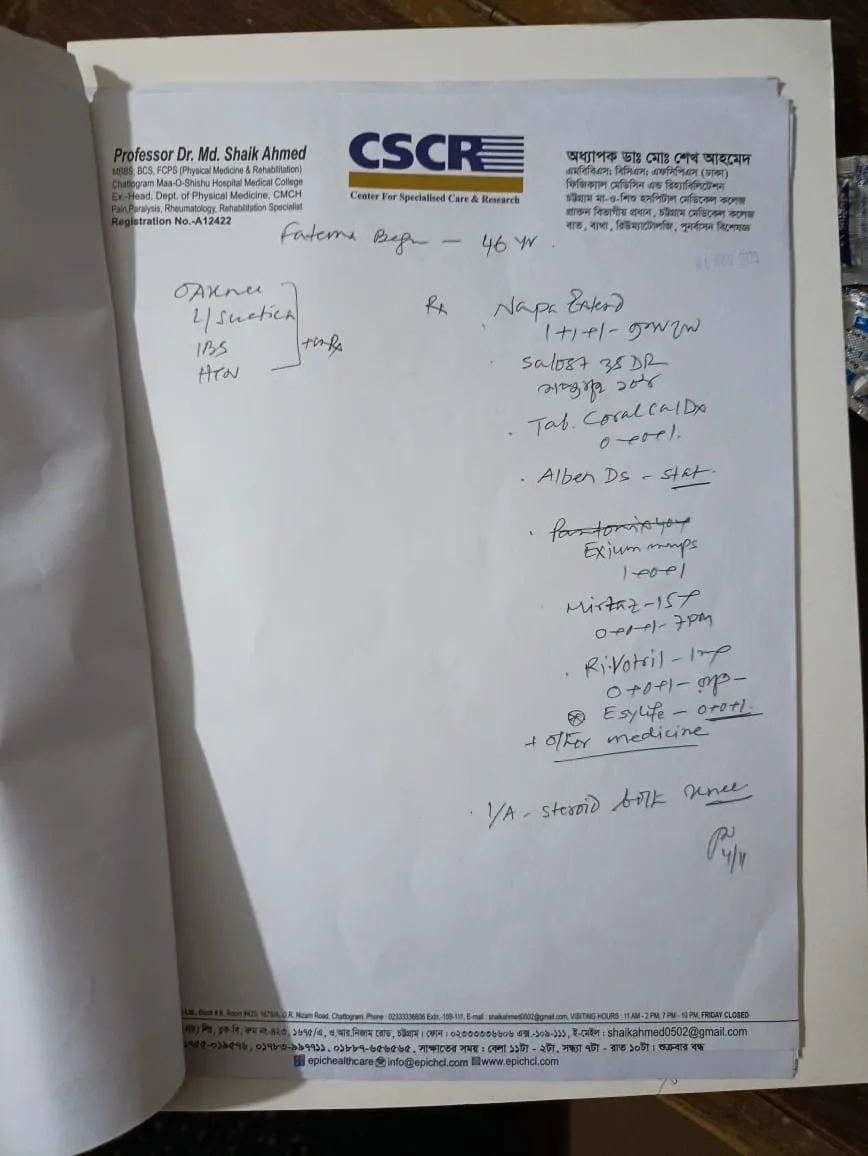 Professor Dr. Md. Shaik Ahmed
MBBS, BCS, FCPS (Physical Medicine & Rehabilitation)
Chattogram Maa-O-Shishu Hospital Medical College
Ex.-Head, Dept. of Physical Medicine, CMCH
Pain, Paralysis, Rheumatology, Rehabilitation Specialist
Registration No.-A12422
CSCR
Center For Specialised Care & Research
অধ্যাপক ডাঃ মোঃ শেখ আহমেদ
এমবিবিএস; বিসিএস; এফসিপিএস (ঢাকা)
ফিজিক্যাল মেডিসিন এন্ড রিহ্যাবিলিটেশন
চট্টগ্রাম মা-ও-শিশু হসপিটাল মেডিকেল কলেজ
প্রাক্তন বিভাগীয় প্রধান, চট্টগ্রাম মেডিকেল কলেজ
বাত, ব্যথা, রিউম্যাটোলজি, পুনর্বাসন বিশেষজ্ঞ
Fatema Begum — 46 yr.
OA Knee
IBS
HTN
Rx
Napa Extend
1+1+1-
Tab. Coralcal Dx
0+0+1.
Alben Ds - stat.
Exium mups
1+0+1
Mirtaz-15
0+0+1- 7PM
Rivotril -
0+0+1-
Esylife - 0+0+1.
+ other medicine
I/A - steroid both knee
4/11
Room #423, 1675/A, O.R. Nizam Road, Chattogram. Phone : 02333336606 Extn.-109-111, E-mail : shaikahmed0502@gmail.com, VISITING HOURS : 11 AM - 2 PM, 7 PM - 10 PM, FRIDAY CLOSED
লিঃ, ব্লক-বি, রুম নং-৪২৩, ১৬৭৫/এ, ও.আর.নিজাম রোড, চট্টগ্রাম। ফোন : ০২৩৩৩৩৩৬৬০৬ এক্স.-১০৯-১১১, ই-মেইল : shaikahmed0502@gmail.com
সাক্ষাতের সময় : বেলা ১১টা - ২টা, সন্ধ্যা ৭টা - রাত ১০টা। শুক্রবার বন্ধ
epichealthcare info@epichcl.com www.epichcl.com